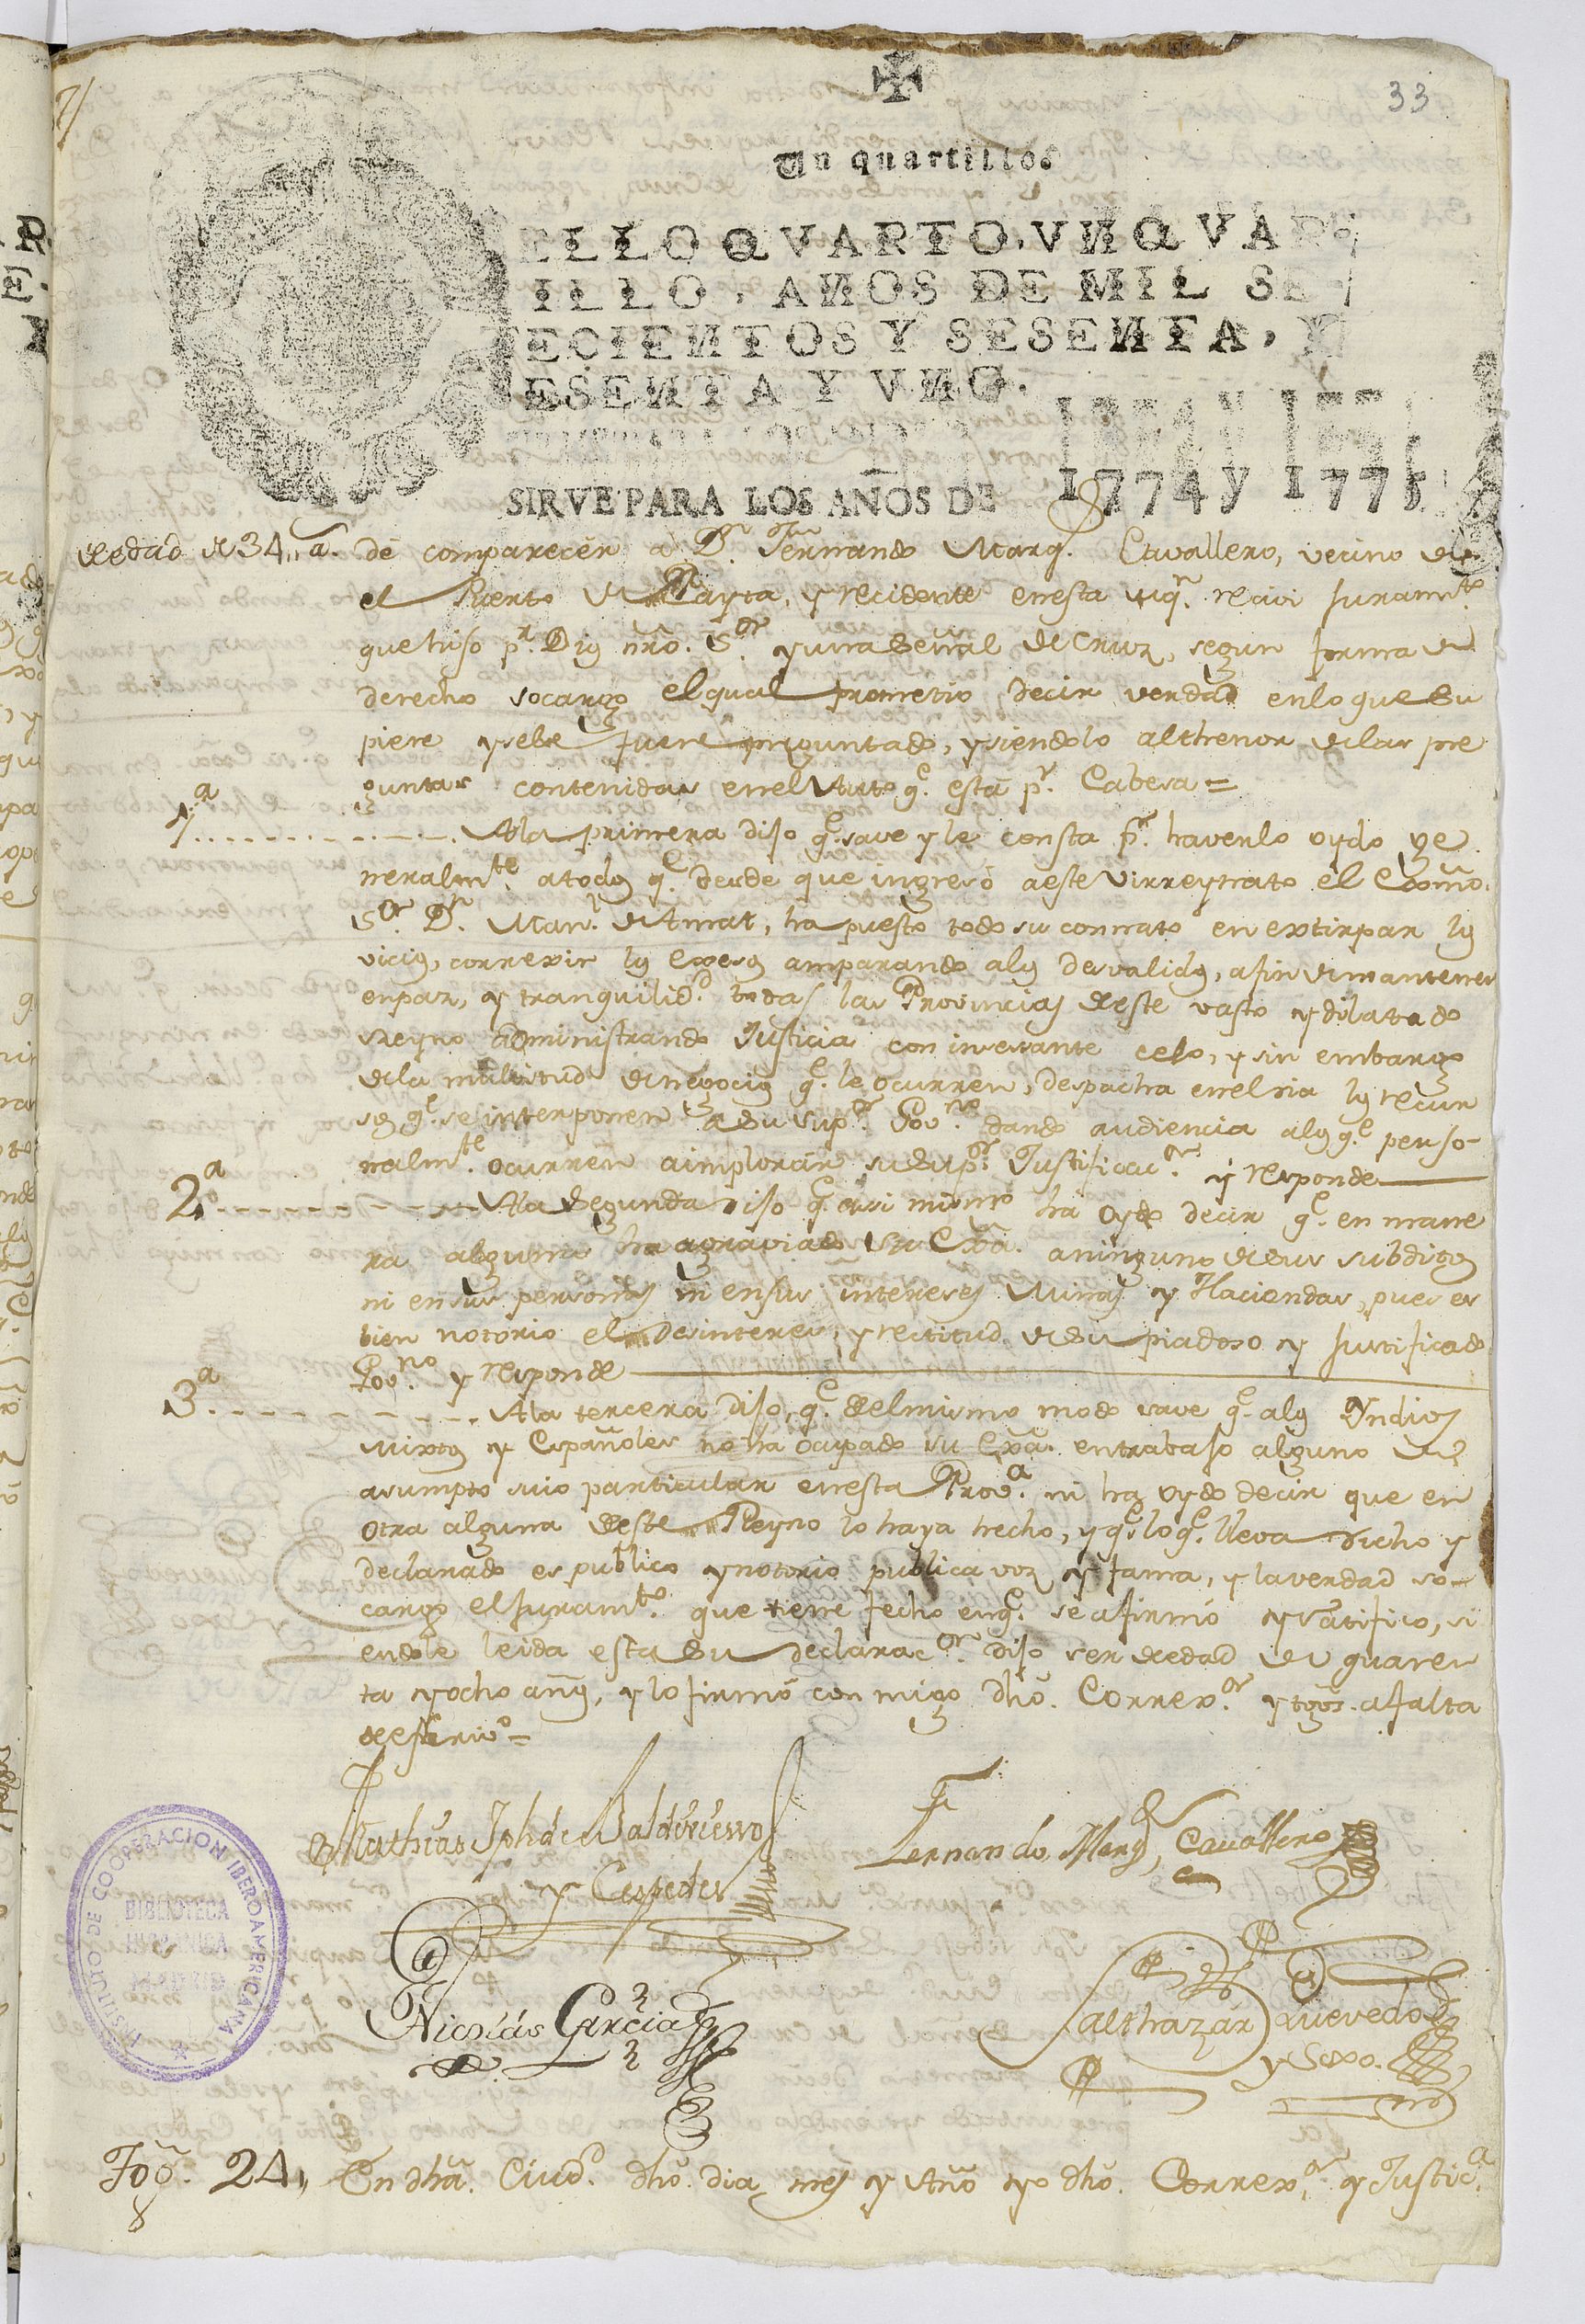 33
Un quartillos
ELLO QVARTO, VN QVAR
ILLO, AÑOS DE MIL SE
TECIENTOS Y SESENTA, Y
ESENTA Y VNO.
SIRVE PARA LOS AÑOS DE 1774 y 1775
de edad de 34,, a.s
de comparecer à D.n Fernando Marq.s Cavallero, vecino de
el Puerto de Payta, y recidente en esta recivi Juram.to
que hiso p.r Dios nr̃o. S.or y una Señal de Cruz, segun forma de
derecho so cargo el qual prometio decir verdad en lo que su
piere y se le fuere preguntado, y siendolo al thenor de las pre
guntas contenidas en el Auto q.e està p.r Cabesa =
1.a
A la primera dijo q.e save y le consta p.r haverlo oydo ge
neralm.te a todos q.e desde que ingresò a este Virreynato el Exc̃mo.
S.or D.n Man.l de Amat, ha puesto todo su connato en extirpar los
vicios, correxir los Exesos amparando a los desvalidos, a fin de mantener
en pas, y tranquilid.d todas las Provincias de este vasto y dilatado
Reyno administrando Justicia con insesante celo, y sin embargo
de la multitud de negocios q.e le ocurren, despacha en el dia los recur
sos q.e se interponen a su sup.or Gov.no dando audiencia a los q.e perso-
nalm.te ocurren a implorar su sup.or Justificac.on y responde
2.a
A la Segunda dijo q.e asi mismo ha oydo decir q.e en mane
ra alguna ha agraviado su Exc̃a. a ninguno de sus subditos
ni en sus personas ni en sus intereses Minas y Haciendas, pues es
bien notorio el desinteres, y rectitud de su piadoso y Justificado
Gov.no y responde
3.a
A la tercera dijo, q.e del mismo modo save q.e a los Yndios
Mixtos y Españoles no ha ocupado su Exc̃a. en trabajo alguno de
asumpto suio particular en esta Prov.a ni ha oydo decir que en
otra alguna de este Reyno lo haya hecho, y q.e lo q.e lleva dicho y
declarado es publico y notorio publica voz y fama, y la verdad so
cargo el Juram.to que tiene fecho en q.e se afirmò y ratifico, si
endole leida esta su declarac.on dijo ser de edad de quaren
ta y ocho años, y lo firmò con migo dho. Correx.or y tgõs. a falta
de Escriv.o =
Mathias Jph de Balderrama
y Cespedes
Fernando Marq.s Cavallero
Nicolás García
Balthazár Quevedo
y Sexo.
INSTITUTO DE COOPERACION IBEROAMERICANA
BIBLIOTECA
HISPANICA
MADRID
Tgõ. 24,,
8
En dhã. Ciud.d dhõ. dia mes y Año yo dhõ. Correx.or y Justic.a